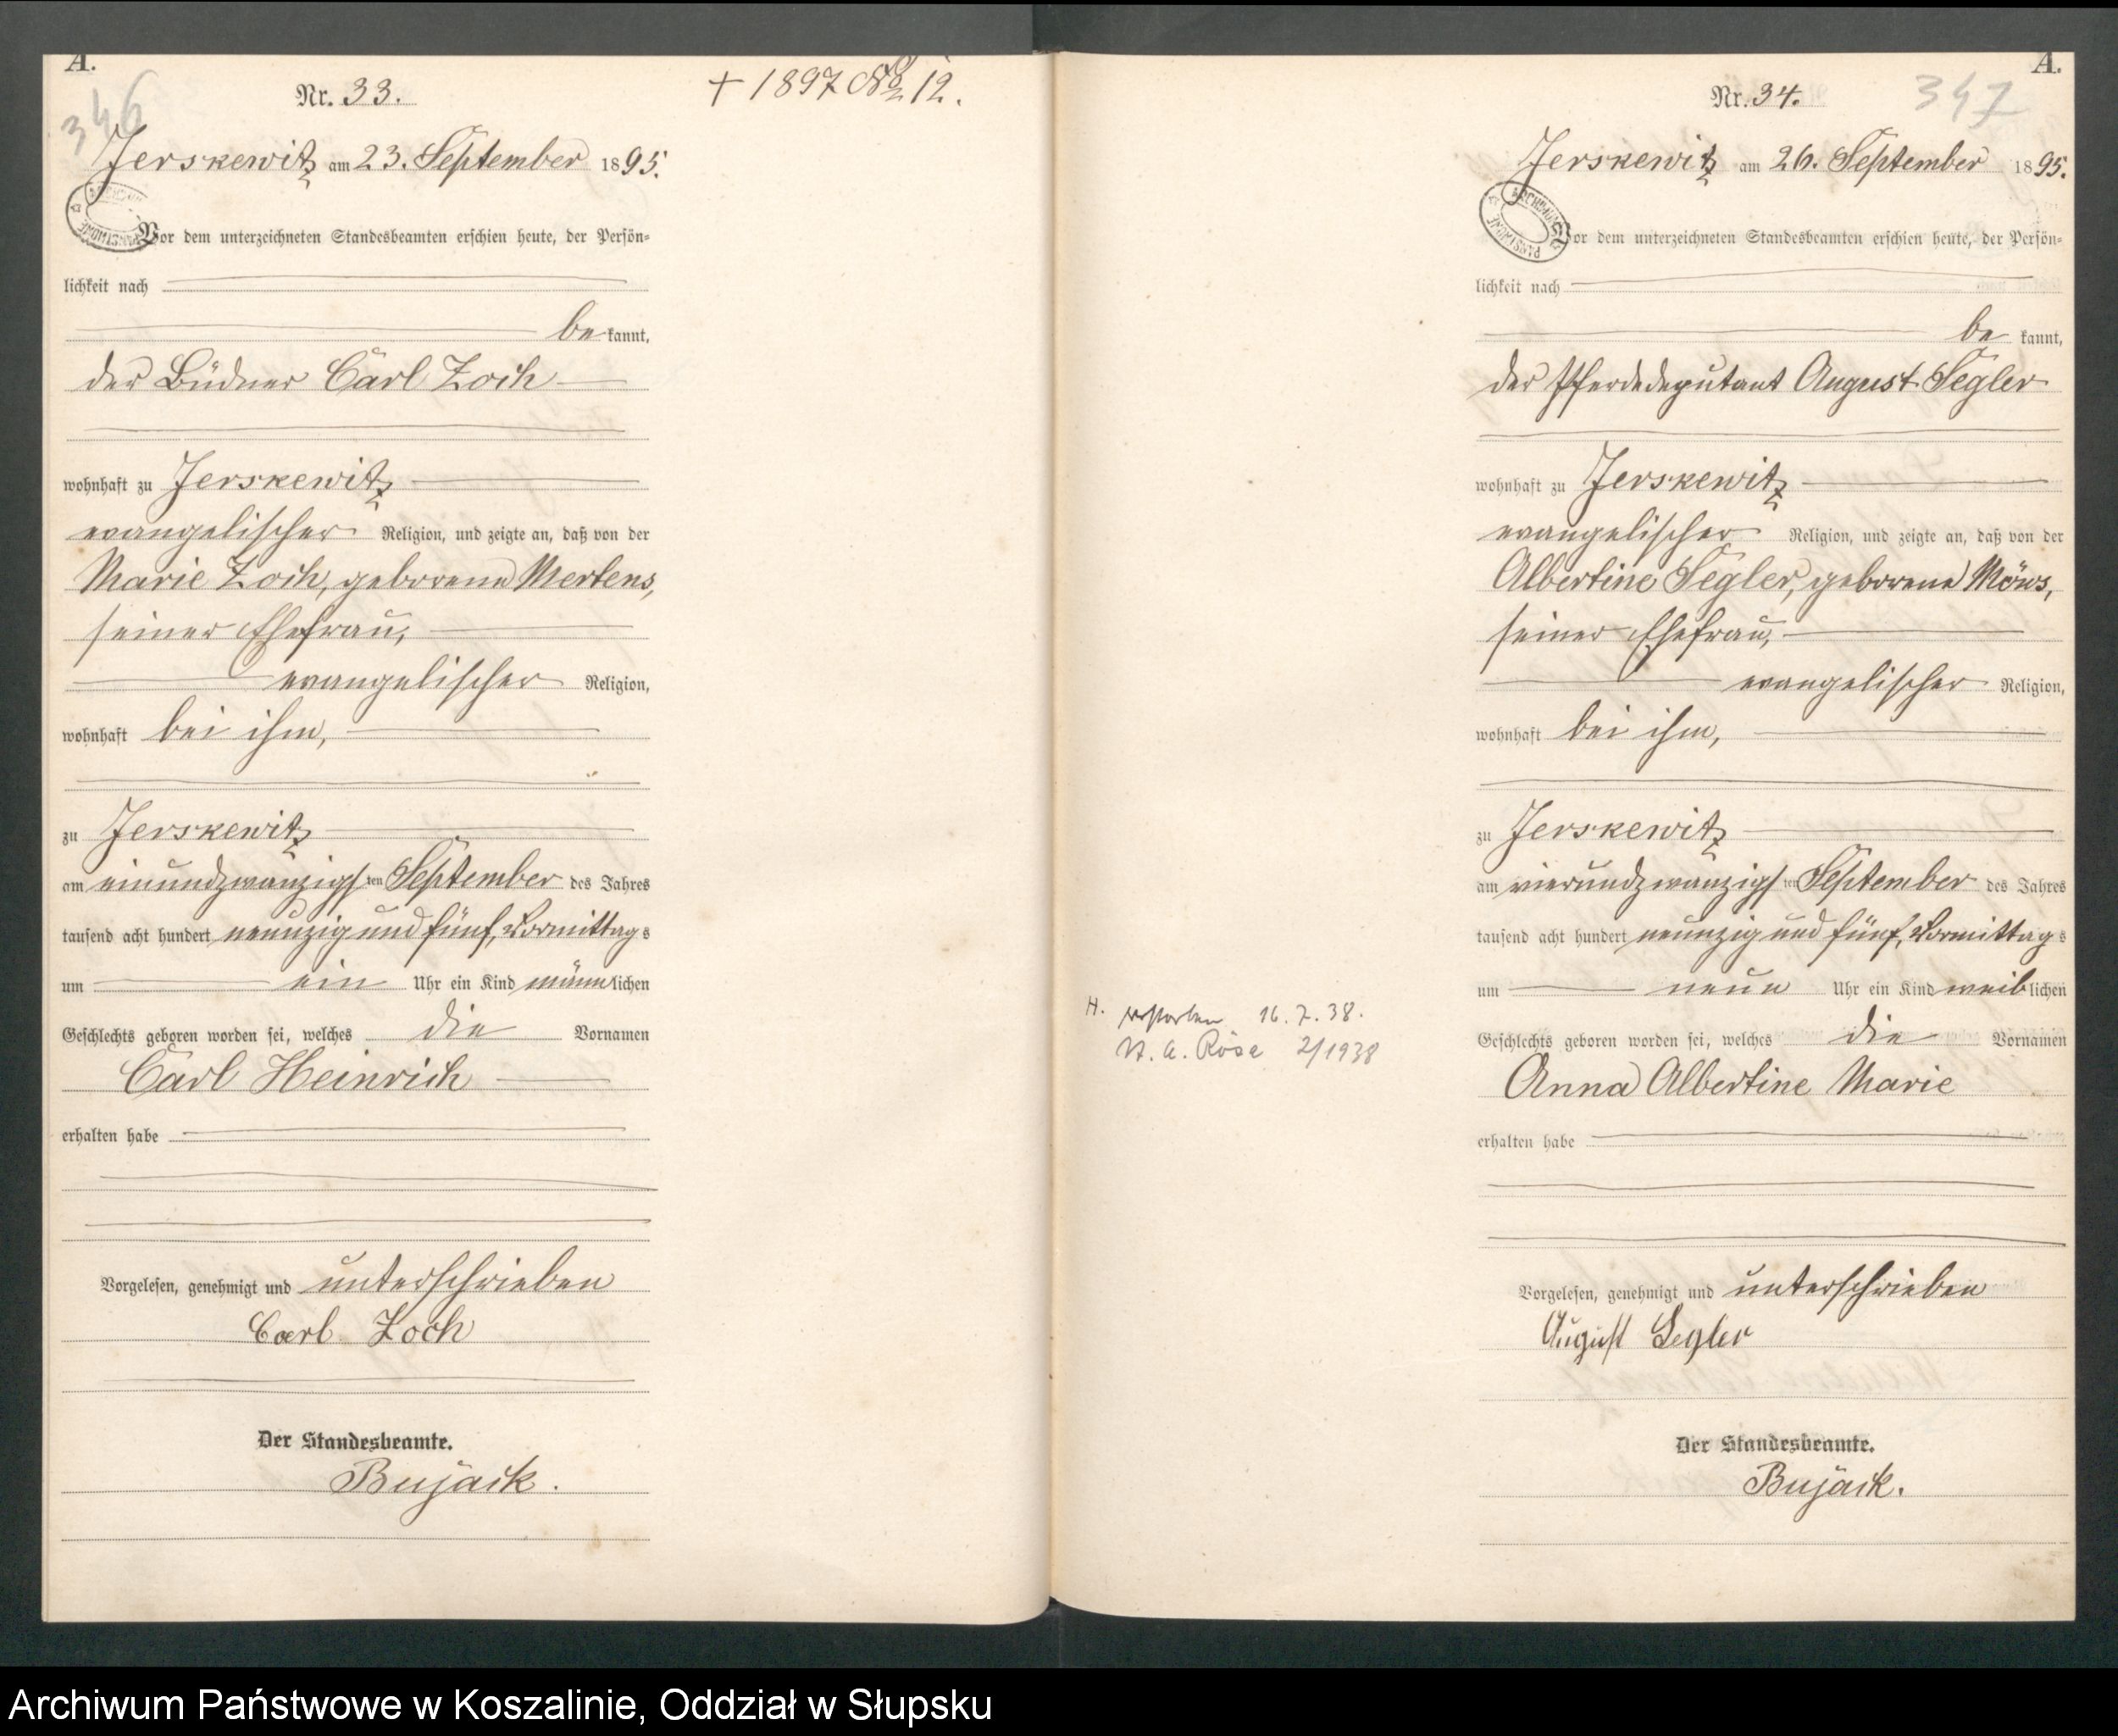 A.
346
Nr. 33.
+ 1897 No 12.
Jerskewitz am 23. September 1895.
Vor dem unterzeichneten Standesbeamten erschien heute, der Persön-
lichkeit nach
be kannt,
der Büdner Carl Zoch
wohnhaft zu Jerskewitz
evangelischer Religion, und zeigte an, daß von der
Marie Zoch, geborene Mertens,
seiner Ehefrau,
evangelischer Religion,
wohnhaft bei ihm,
zu Jerskewitz
am einundzwanzigsten September des Jahres
tausend acht hundert neunzig und fünf, Vormittags
um ein Uhr ein Kind männlichen
Geschlechts geboren worden sei, welches die Vornamen
Carl Heinrich
erhalten habe
Vorgelesen, genehmigt und unterschrieben
Carl Zoch
Der Standesbeamte.
Bujack.
A.
Nr. 34.
347
Jerskewitz am 26. September 1895.
Vor dem unterzeichneten Standesbeamten erschien heute, der Persön-
lichkeit nach
be kannt,
der Pferdedeputant August Segler
wohnhaft zu Jerskewitz
evangelischer Religion, und zeigte an, daß von der
Albertine Segler, geborene Möws,
seiner Ehefrau,
evangelischer Religion,
wohnhaft bei ihm,
zu Jerskewitz
am vierundzwanzigsten September des Jahres
tausend acht hundert neunzig und fünf, Vormittags
um neun Uhr ein Kind weiblichen
Geschlechts geboren worden sei, welches die Vornamen
Anna Albertine Marie
erhalten habe
H. verstorben 16. 7. 38.
St. A. Röse 2/1938
Vorgelesen, genehmigt und unterschrieben
August Segler
Der Standesbeamte.
Bujack.
Archiwum Państwowe w Koszalinie, Oddział w Słupsku